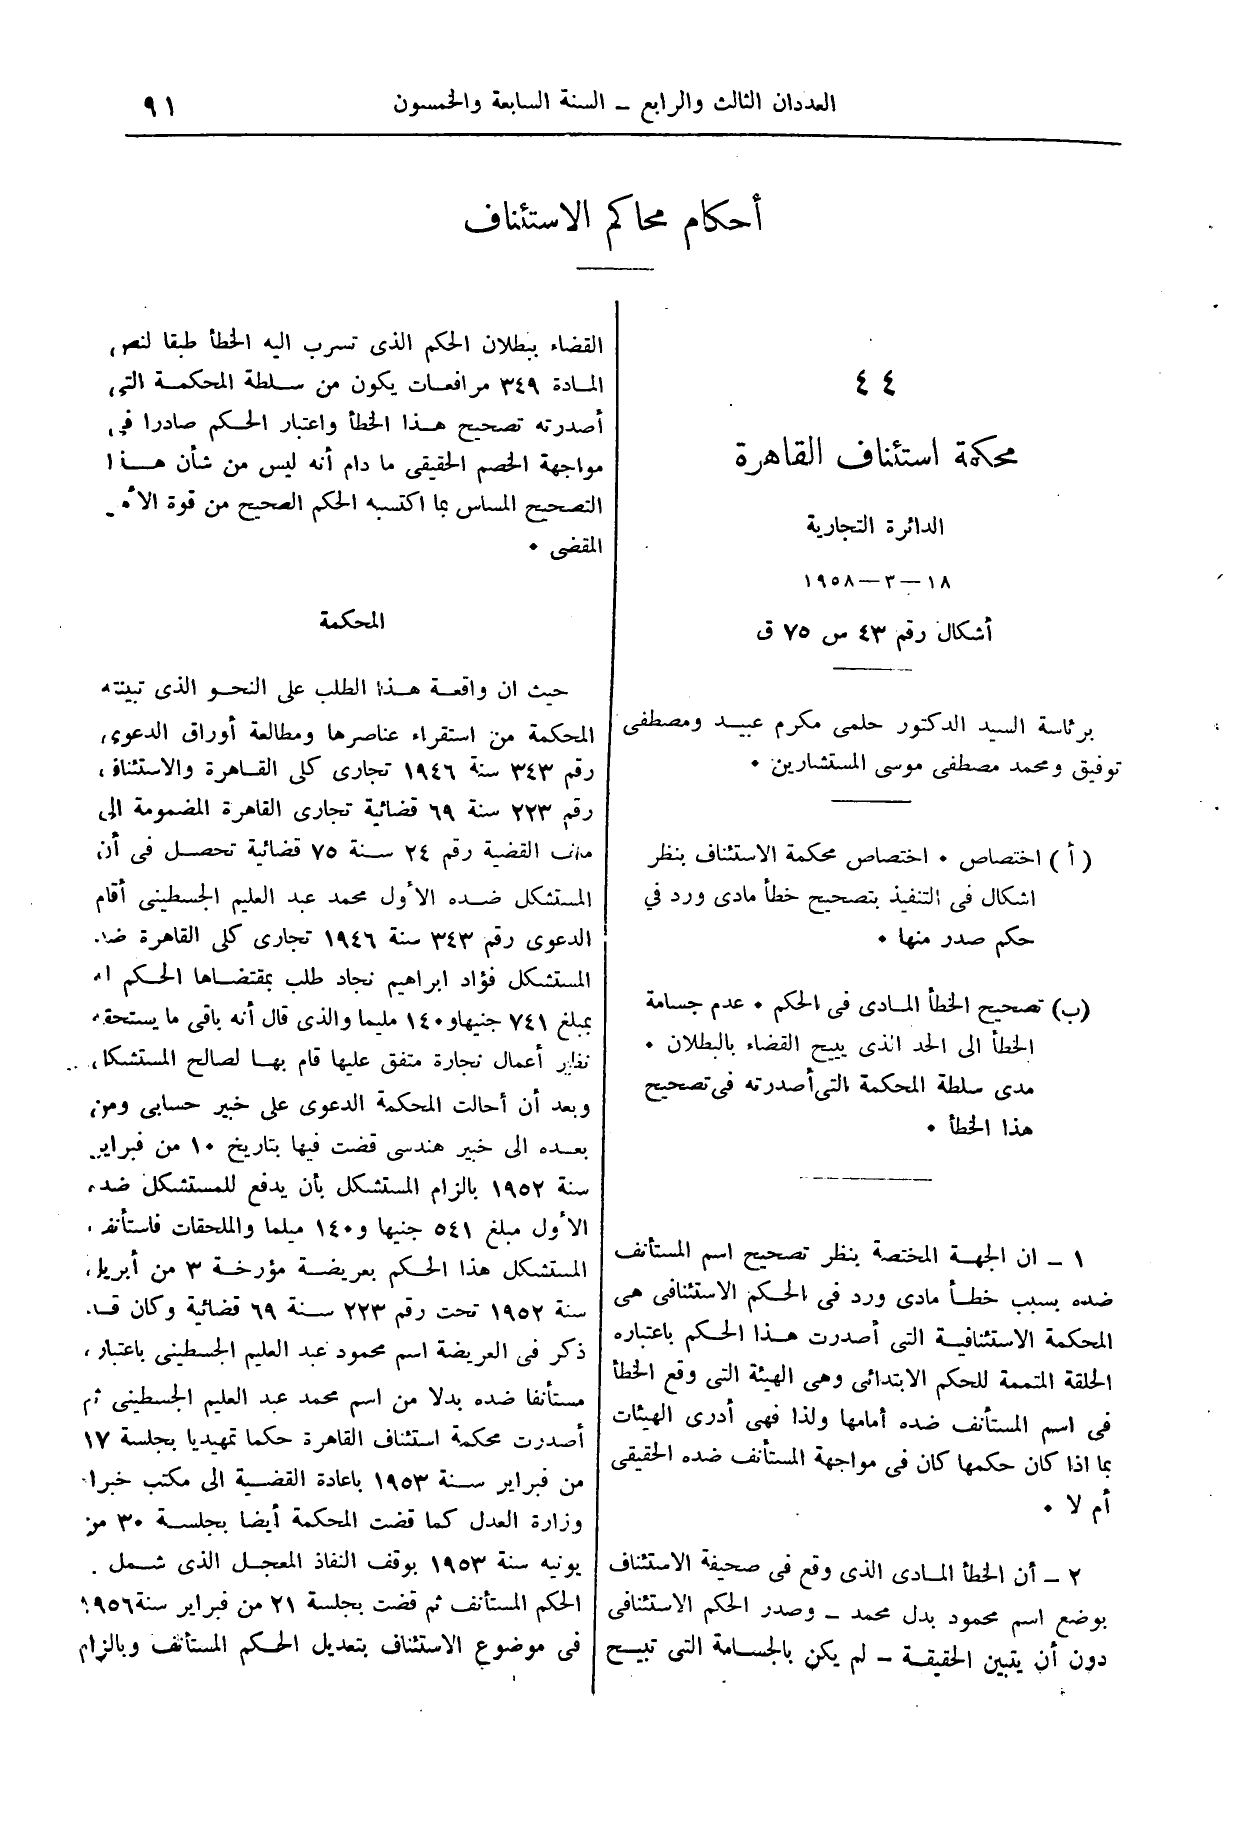 العددان الثالث والرابع – السنة السابعة والخمسون
٩١
أحكام محاكم الاستئناف
٤٤
محكمة استئناف القاهرة
الدائرة التجارية
١٨—٣—١٩٥٨
أشكال رقم ٤٣ س ٧٥ ق
برئاسة السيد الدكتور حلمى مكرم عبيد ومصطفى
توفيق ومحمد مصطفى موسى المستشارين ٠
( أ ) اختصاص ٠ اختصاص محكمة الاستئناف بنظر
اشكال فى التنفيذ بتصحيح خطأ مادى ورد في
حكم صدر منها ٠
(ب) تصحيح الخطأ المادى فى الحكم ٠ عدم جسامة
الخطأ الى الحد الذى يبيح القضاء بالبطلان ٠
مدى سلطة المحكمة التى أصدرته فى تصحيح
هذا الخطأ ٠
١ – ان الجهة المختصة بنظر تصحيح اسم المستأنف
ضده بسبب خطأ مادى ورد فى الحكم الاستئنافى هى
المحكمة الاستئنافية التى أصدرت هذا الحكم باعتباره
الحلقة المتممة للحكم الابتدائى وهى الهيئة التى وقع الخطأ
فى اسم المستأنف ضده أمامها ولذا فهى أدرى الهيئات
بما اذا كان حكمها كان فى مواجهة المستأنف ضده الحقيقى
أم لا ٠
٢ – أن الخطأ المادى الذى وقع فى صحيفة الاستئناف
بوضع اسم محمود بدل محمد – وصدر الحكم الاستئنافى
دون أن يتبين الحقيقة – لم يكن بالجسامة التى تبيح
القضاء ببطلان الحكم الذى تسرب اليه الخطأ طبقا لنص
المادة ٣٤٩ مرافعات يكون من سلطة المحكمة التى
أصدرته تصحيح هذا الخطأ واعتبار الحكم صادرا فى
مواجهة الخصم الحقيقى ما دام أنه ليس من شأن هذا
التصحيح المساس بما اكتسبه الحكم الصحيح من قوة الأمر
المقضى ٠
المحكمة
حيث ان واقعة هذا الطلب على النحو الذى تبينته
المحكمة من استقراء عناصرها ومطالعة أوراق الدعوى
رقم ٣٤٣ سنة ١٩٤٦ تجارى كلى القاهرة والاستئناف
رقم ٢٢٣ سنة ٦٩ قضائية تجارى القاهرة المضمومة الى
ملف القضية رقم ٢٤ سنة ٧٥ قضائية تحصل فى أن
المستشكل ضده الأول محمد عبد العليم الجسطينى أقام
الدعوى رقم ٣٤٣ سنة ١٩٤٦ تجارى كلى القاهرة ضد
المستشكل فؤاد ابراهيم نجاد طلب بمقتضاها الحكم له
بمبلغ ٧٤١ جنيهاو١٤٠ مليما والذى قال أنه باقى ما يستحقه
نظير أعمال نجارة متفق عليها قام بها لصالح المستشكل
وبعد أن أحالت المحكمة الدعوى على خبير حسابى ومن
بعده الى خبير هندسى قضت فيها بتاريخ ١٠ من فبراير
سنة ١٩٥٢ بالزام المستشكل بأن يدفع للمستشكل ضده
الأول مبلغ ٥٤١ جنيها و١٤٠ ميلما والملحقات فاستأنف
المستشكل هذا الحكم بعريضة مؤرخة ٣ من أبريل
سنة ١٩٥٢ تحت رقم ٢٢٣ سنة ٦٩ قضائية وكان قد
ذكر فى العريضة اسم محمود عبد العليم الجسطينى باعتباره
مستأنفا ضده بدلا من اسم محمد عبد العليم الجسطينى ثم
أصدرت محكمة استئناف القاهرة حكما تمهيديا بجلسة ١٧
من فبراير سنة ١٩٥٣ باعادة القضية الى مكتب خبراء
وزارة العدل كما قضت المحكمة أيضا بجلسة ٣٠ من
يونيه سنة ١٩٥٣ بوقف النفاذ المعجل الذى شمل
الحكم المستأنف ثم قضت بجلسة ٢١ من فبراير سنة ١٩٥٦
فى موضوع الاستئناف بتعديل الحكم المستأنف وبالزام